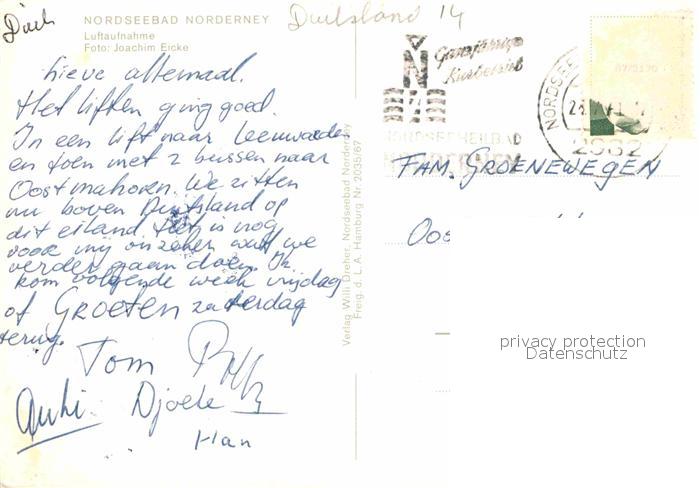 Duitsland 14
NORDSEEBAD NORDERNEY
Luftaufnahme
Foto: Joachim Eicke
Lieve allemaal.
Het liften ging goed.
In een lift naar Leeuwarden
en toen met 2 bussen naar
Oostmahoren. We zitten
nu boven Duitsland op
dit eiland. Het is nog
voor mij onzeker wat we
verder gaan doen. Ik
kom volgende week vrijdag
of GROETEN zaterdag
terug.
Tom
Djoeke
Han
Verlag Willi Dreher, Nordseebad Norderney
Freig. d. L.A. Hamburg Nr. 2035/67
Ganzjähriger
Kurbetrieb
NORDSEEHEILBAD
NORDERNEY
NORDSEE
2982
FAM. GROENEWEGEN
Oos
privacy protection
Datenschutz